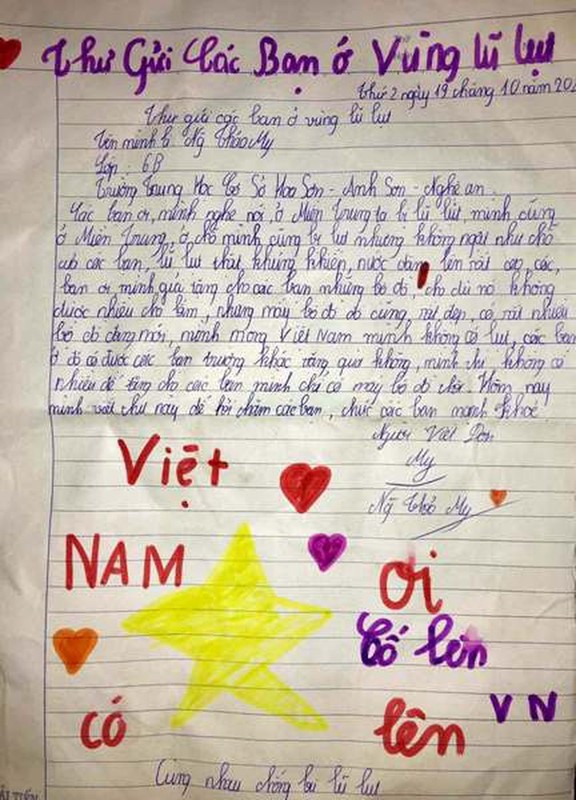 Thư Gửi Các Bạn ở Vùng lũ lụt
Thứ 2 ngày 19 tháng 10 năm 20
Thư gửi các bạn ở vùng lũ lụt
Tên mình là Ng Thảo My
Lớp : 6B
Trường Trung Học Cơ Sở Hoa Sơn - Anh Sơn - Nghệ an
Các bạn ơi, mình nghe nói, ở Miền Trung ta bị lũ lụt, mình cũng
ở Miền Trung, ở chỗ mình cũng bị lụt nhưng không ngại như chỗ
của các bạn. lũ lụt thật khủng khiếp, nước dâng lên rất cao, các
bạn ơi mình gửi tặng cho các bạn những bộ đồ, cho dù nó không
được nhiều cho lắm, nhưng mấy bộ đồ đó cũng rất đẹp, có rất nhiều
bộ đồ đang mới, mình mong Việt Nam mình không có lụt, các bạn
ở đó có được các bạn trường khác tặng quà không, mình thì không có
nhiều để tặng cho các bạn mình chỉ có mấy bộ đồ thôi. Hôm nay
mình viết thư này để hỏi thăm các bạn, chúc các bạn mạnh khoẻ
Người Viết Đơn
My
Ng Thảo My
Việt
NAM
ơi
Cố lên
VN
có
lên
Cùng nhau chống lũ lụt